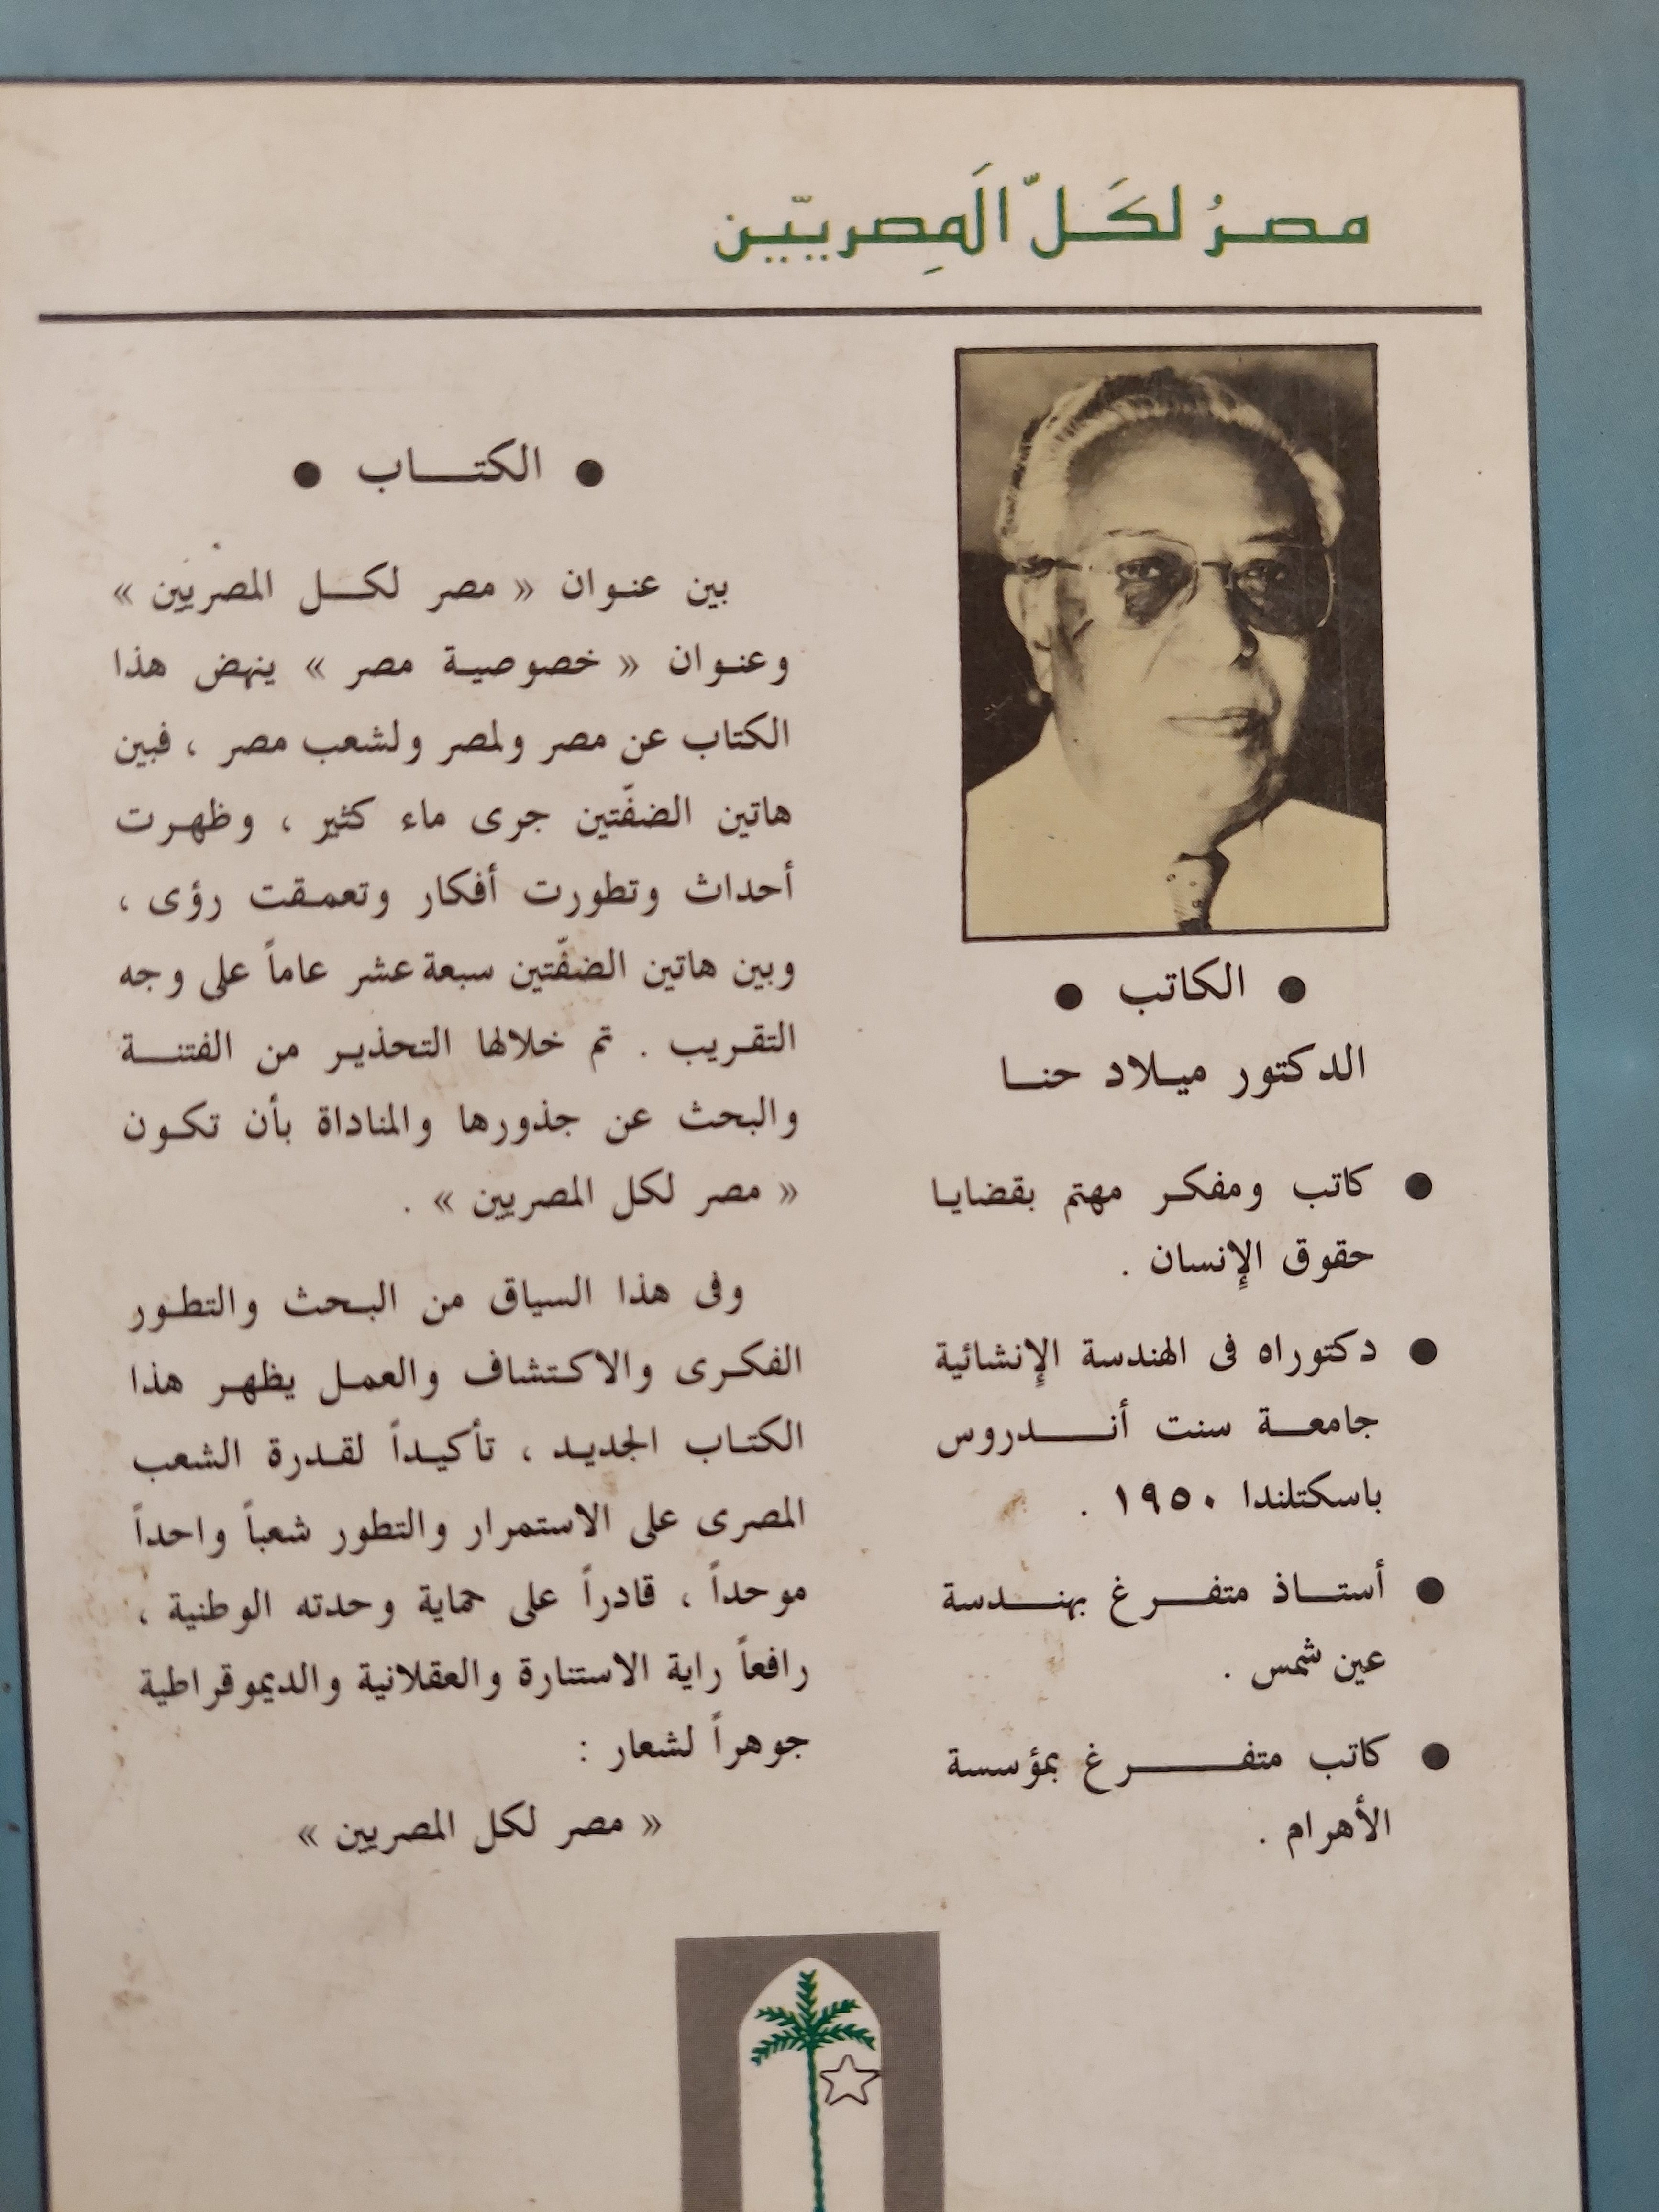 مصرُ لكَلّ اَلمِصرييّين
● الكاتب ●
الدكتور ميلاد حنا
● كاتب ومفكر مهتم بقضايا
حقوق الإنسان .
● دكتوراه فى الهندسة الإنشائية
جامعة سنت أندروس
باسكتلندا ١٩٥٠ .
● أستاذ متفرغ بهندسة
عين شمس .
● كاتب متفرغ بمؤسسة
الأهرام .
● الكتاب ●
بين عنوان « مصر لكل المصريين »
وعنوان « خصوصية مصر » ينهض هذا
الكتاب عن مصر ولمصر ولشعب مصر ، فبين
هاتين الضفّتين جرى ماء كثير ، وظهرت
أحداث وتطورت أفكار وتعمقت رؤى ،
وبين هاتين الضفّتين سبعة عشر عاماً على وجه
التقريب . تم خلالها التحذير من الفتنة
والبحث عن جذورها والمناداة بأن تكون
« مصر لكل المصريين » .
وفى هذا السياق من البحث والتطور
الفكرى والاكتشاف والعمل يظهر هذا
الكتاب الجديد ، تأكيداً لقدرة الشعب
المصرى على الاستمرار والتطور شعباً واحداً
موحداً ، قادراً على حماية وحدته الوطنية ،
رافعاً راية الاستنارة والعقلانية والديموقراطية
جوهراً لشعار :
« مصر لكل المصريين »